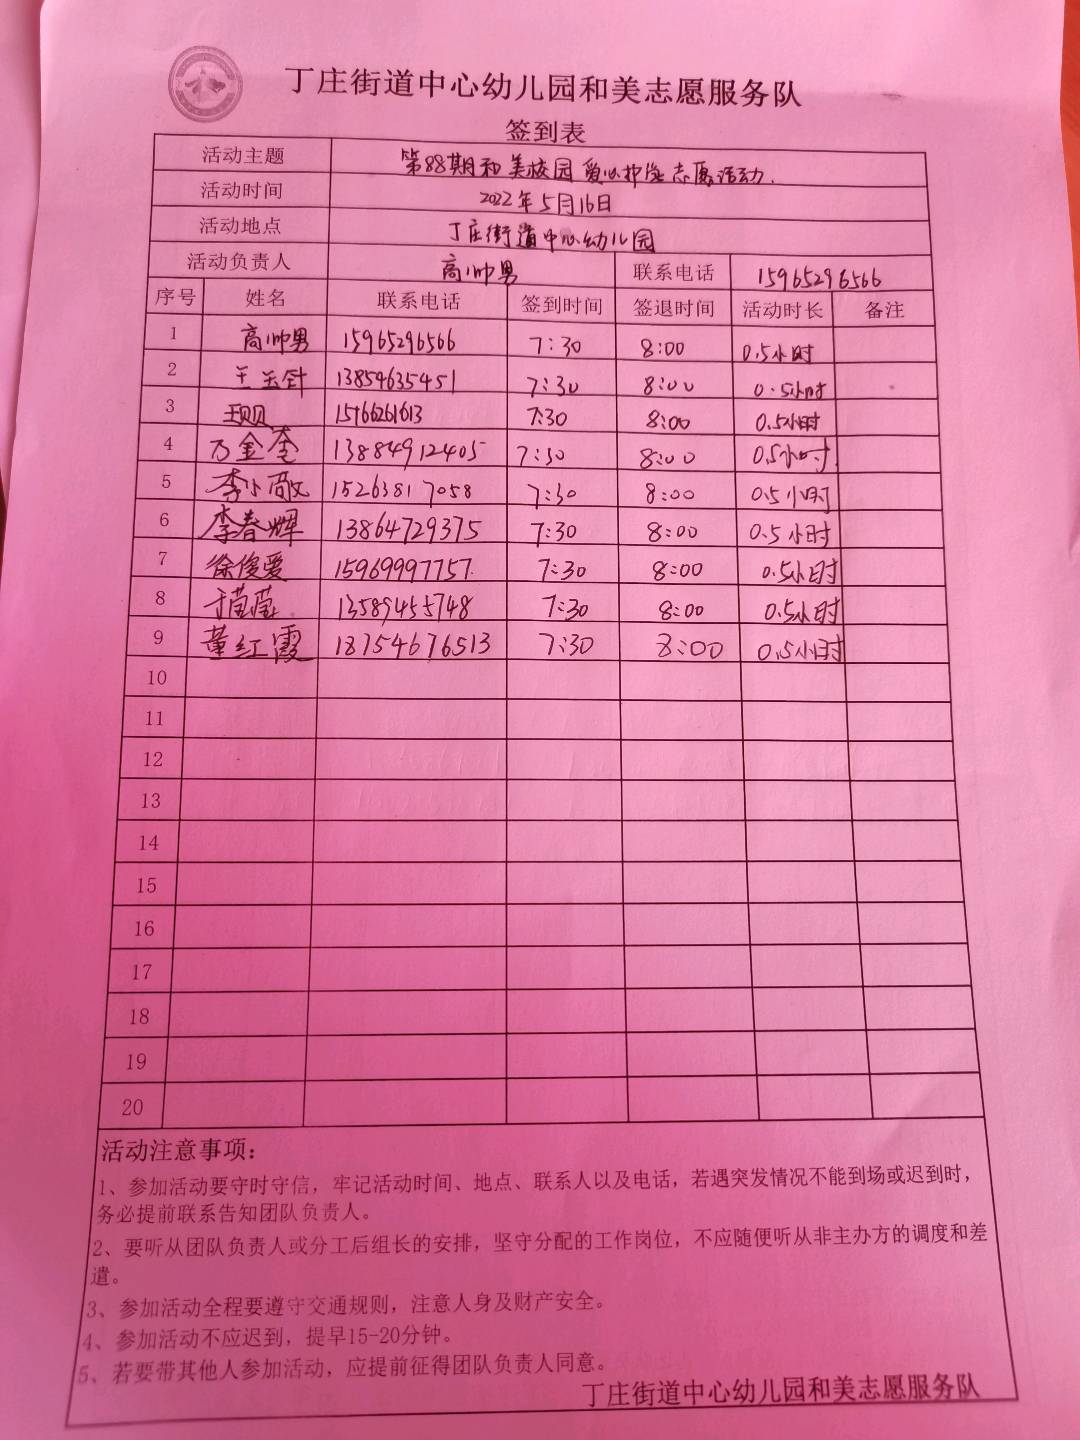 丁庄街道中心幼儿园和美志愿服务队
签到表
活动主题 第88期和美校园爱心护学志愿活动.
活动时间 2022年5月16日
活动地点 丁庄街道中心幼儿园
活动负责人 高帅男 联系电话 15965296566
序号 姓名 联系电话 签到时间 签退时间 活动时长 备注
1 高帅男 15965296566 7:30 8:00 0.5小时
2 王玉针 13854635451 7:30 8:00 0.5小时
3 7:30 8:00 0.5小时
4 万金奎 13884912405 7:30 8:00 0.5小时
5 李小敬 15263817058 7:30 8:00 0.5小时
6 李春辉 13864729375 7:30 8:00 0.5小时
7 徐俊爱 15969997757 7:30 8:00 0.5小时
8 于莹莹 13589455748 7:30 8:00 0.5小时
9 董红霞 18754676513 7:30 8:00 0.5小时
10
11
12
13
14
15
16
17
18
19
20
活动注意事项：
1、参加活动要守时守信，牢记活动时间、地点、联系人以及电话，若遇突发情况不能到场或迟到时，
务必提前联系告知团队负责人。
2、要听从团队负责人或分工后组长的安排，坚守分配的工作岗位，不应随便听从非主办方的调度和差
遣。
3、参加活动全程要遵守交通规则，注意人身及财产安全。
4、参加活动不应迟到，提早15-20分钟。
5、若要带其他人参加活动，应提前征得团队负责人同意。
丁庄街道中心幼儿园和美志愿服务队